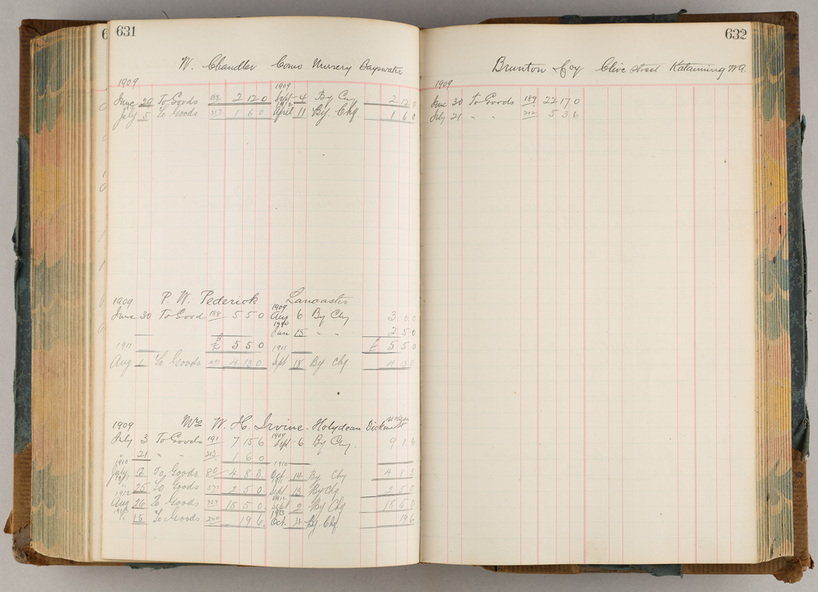 631
W. Chandler Como Nursery Bayswater
1909 1909
June 29 To Goods 2 12 0 Sept 4 By Chq 2 12 0
July 5 To Goods 1 6 0 April 11 By Chq 1 6 0
1909 P. W. Pederick Lancaster
1909
June 30 To Goods 189 5 5 0 Aug 6 By Chq 3 0 0
1910
Jan 15 " " 2 5 0
£ 5 5 0 £ 5 5 0
1911 1911
Aug 1 To Goods Sept 18 By Chq
1909 Mrs W. H. Irvine Holydean
July 3 To Goods 191 7 15 6 Sept 6 By Chq 9 1 6
" 21 " " 212 1 6 0
1910 1910
July 2 To Goods 4 8 6 Sept 14 By Chq 4 8 6
" 25 To Goods 2 5 0 Sept 13 By Chq 2 5 0
Aug 26 To Goods 15 5 0 Sept 2 By Chq 15 5 0
" 15 To Goods 19 6 Oct 11 By Chq 19 6
632
Brunton & Coy Clive Street Katanning WA.
1909
June 30 To Goods 189 22 17 0
July 21 " " 212 5 3 6